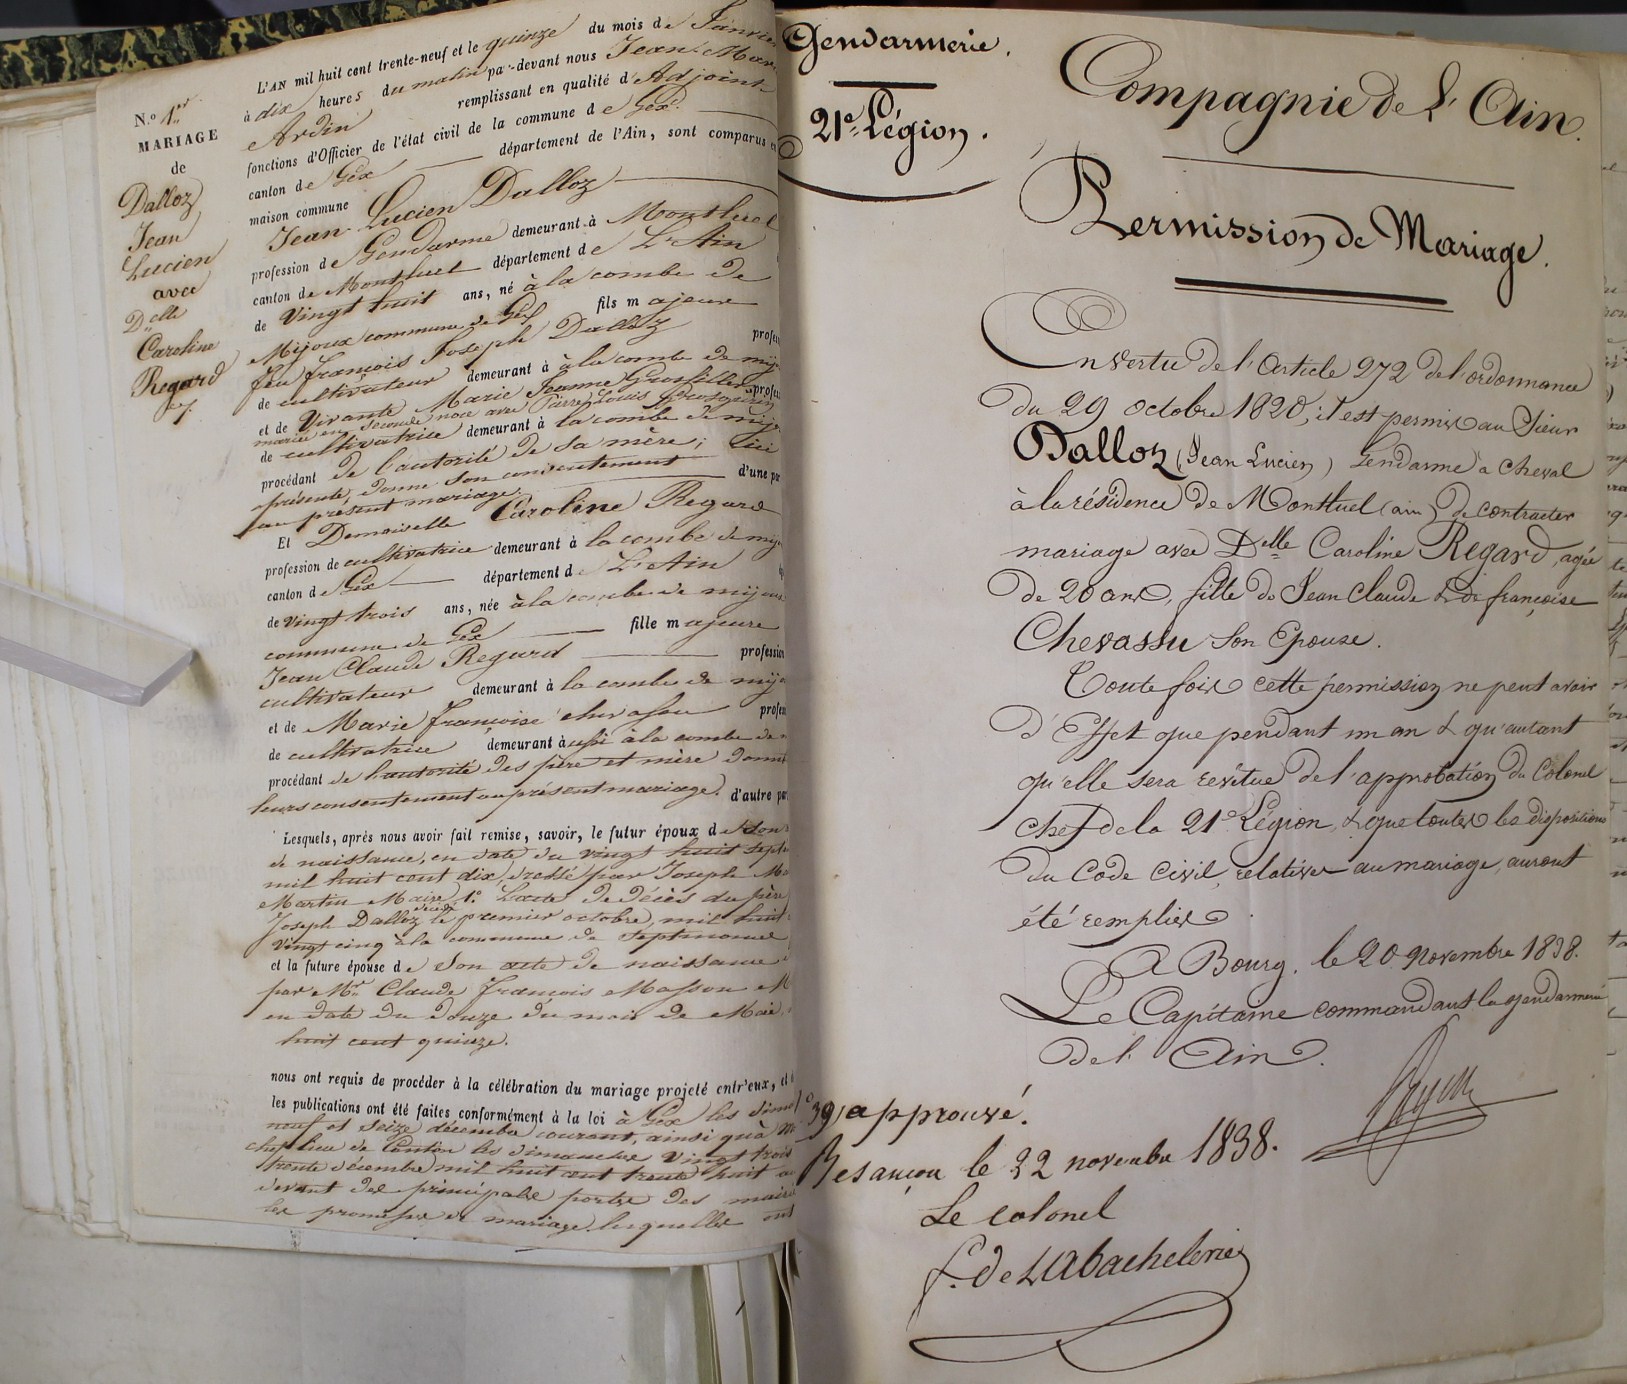 N.° 1.er
MARIAGE
de
Dalloz
Jean
Lucien
avec
Delle
Caroline
Regard
L'AN mil huit cent trente-neuf et le quinze du mois de Janvier
à dix heures du matin par-devant nous Jean-Mar
Ardin remplissant en qualité d'Adjoint
fonctions d'Officier de l'état civil de la commune de Gex
canton de Gex département de l'Ain, sont comparus en
maison commune Jean-Lucien Dalloz
profession de Gendarme demeurant à Montluel
canton de Montluel département de L'Ain
de vingt huit ans, né à la combe de
Mijoux commune de Gex fils majeur
feu françois Joseph Dalloz profes
de cultivateur demeurant à à la combe de mij
et de Vivante Marie Jeanne Grosfiller profes
mariée en seconde noce avec Pierre Louis
de cultivatrice demeurant à la combe de mij
procédant de l'autorité de sa mère; ici
présente, donne son consentement d'une par
au présent mariage.
Et Demoiselle Caroline Regard
profession de cultivatrice demeurant à la combe de mij
canton de Gex département de L'Ain
de vingt trois ans, née à la combe de mijoux
commune de Gex fille majeure
Jean Claude Regard profession
cultivateur demeurant à la combe de mij
et de Marie françoise chevassu profes
de cultivatrice demeurant aussi à la combe de
procédant de l'autorité des père et mère donnt
leurs consentement au présent mariage. d'autre par
Lesquels, après nous avoir fait remise, savoir, le futur époux de son
de naissance, en date du vingt huit sept
mil huit cent dix, dressé par Joseph Ma
Martin Maire, 1° L'acte de décès du père
Joseph Dalloz décédé le premier octobre, mil huit
vingt cinq à la commune de Septmoncel
et la future épouse de son acte de naissance
par Mr Claude françois Masson M
en date du douze du mois de Mai
huit cent quinze.
nous ont requis de procéder à la célébration du mariage projeté entr'eux, et
les publications ont été faites conformément à la loi à Gex les dima
neuf et seize décembre courant, ainsi qu'à M
chef lieu de Canton les dimanches vingt trois
trente décembre mil huit cent trente huit
devant des principale portes des mairi
les promesse de mariage lesquelles ont
Gendarmerie.
21e Légion.
Compagnie de L'Ain.
Permission de Mariage.
En vertu de l'Article 272 de l'ordonnance
du 29 octobre 1820, il est permis au Sieur
Dalloz (Jean Lucien) Gendarme à cheval
à la résidence de Montluel (ain) de contracter
mariage avec Delle Caroline Regard, agée
de 20 ans, fille de Jean Claude & de françoise
Chevassu son Epouse.
Toutefois cette permission ne peut avoir
d'Effet que pendant un an & qu'autant
qu'elle sera revêtue de l'approbation du Colonel
chef de la 21e Légion, & que toutes les dispositions
du Code Civil, relatives au mariage, auront
été remplies.
A Bourg, le 20 Novembre 1838.
Le Capitaine commandant la gendarmerie
de l'Ain.
39, approuvé.
Besançon le 22 novembre 1838.
Le colonel
f. de Labachelerie